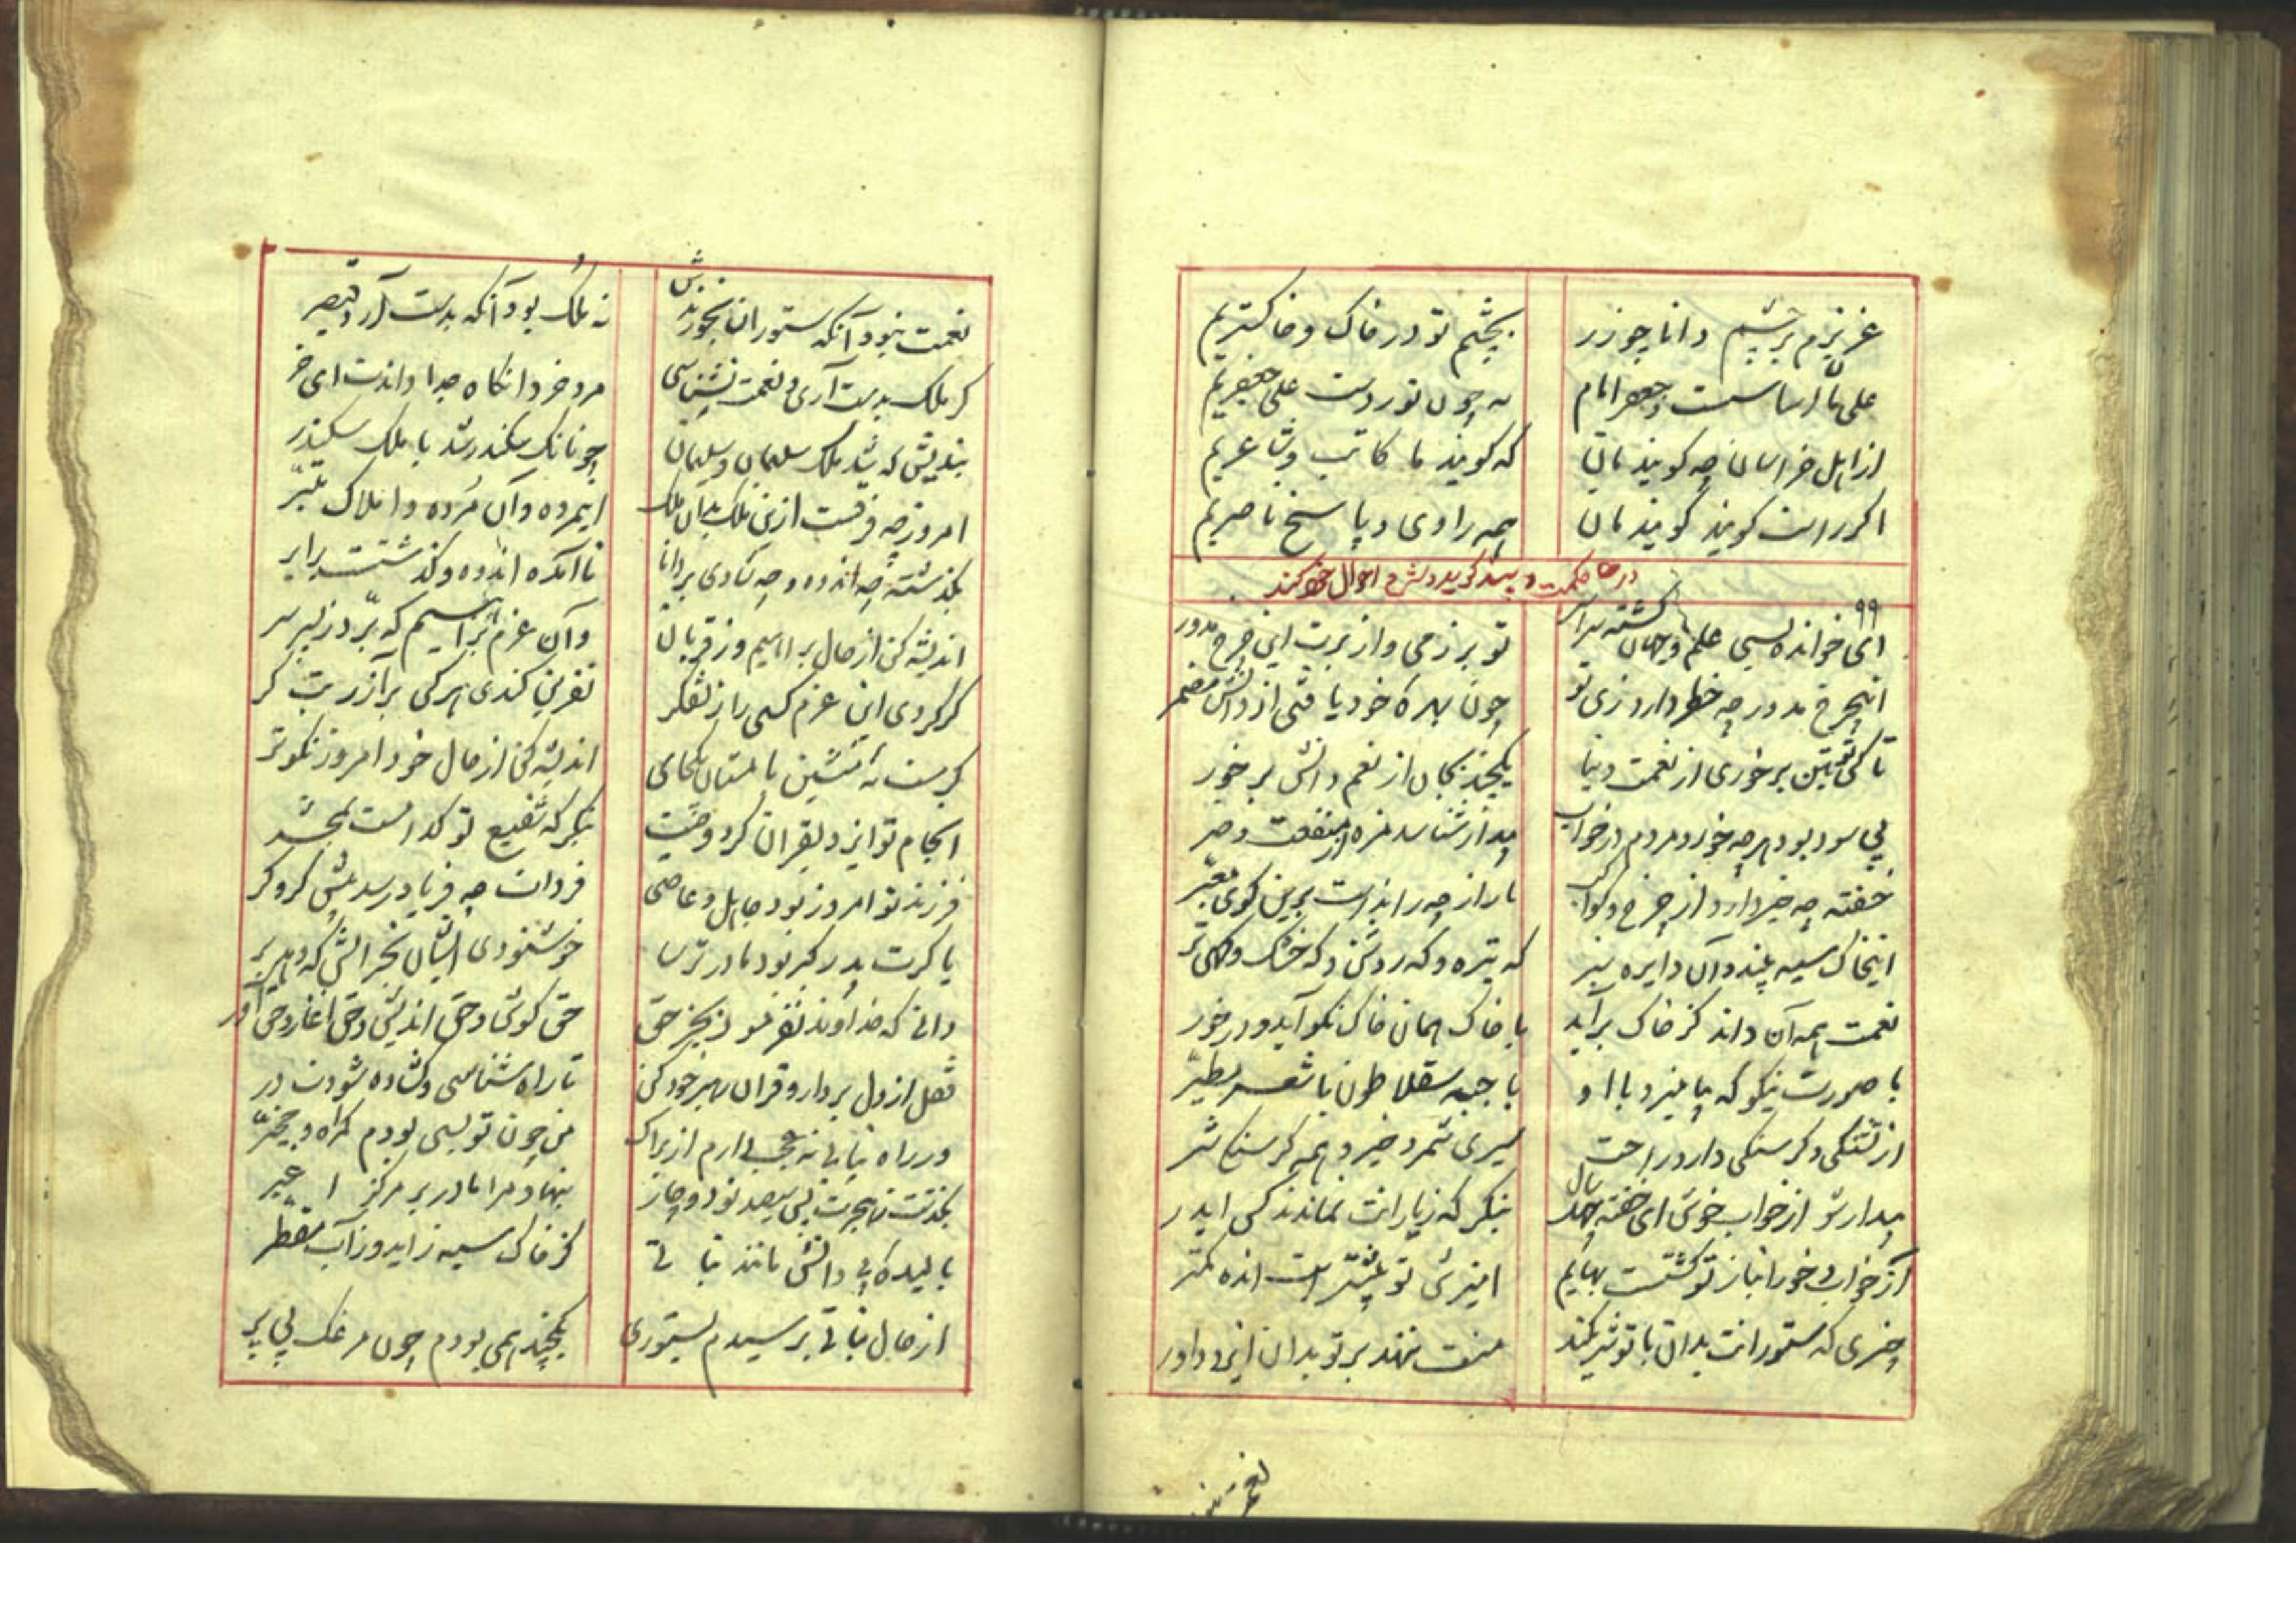 عزیزم بر چشم دانا چو زر بچشم تو در خاک و خاکستریم
علی مان اساسست و جعفر امام نه چون تو ز دست علی جعفریم
از اهل خراسان چه کویند مان که کویند ما کاتب و شاعریم
اکر راست کویند کویند مان همه راوی و پاسخ ناصریم
در حکمت و پند کوید و شرح احوال خود کند
۹۹
ای خوانده بسی علم و جهان کشته سراسر تو بر زمی و از برت این چرخ مدور
اینچرخ مدور چه خطر دارد زی تو چون بهره خود یافتی از دانش مضمر
تا کی تو بتن برخوری از نعمت دنیا یکچند بجان از نعم دانش بر خور
بی سود بود هرچه خورد مردم در خواب بیدار شناسد مزه از منفعت و ضر
خفته چه خبر دارد از چرخ و کواکب دادار چه رانداست برین کوی مغبر
اینخاک سیه بیند و آن دایره سبز که تیره و که روشن و که خشک و کهی تر
نعمت همه آن داند کز خاک بر آید با خاک همان خاک نکو آید و در خور
با صورت نیکو که بیامیزد با او با جبه سقلاطون با شعر مطیر
از تشنکی و کرسنکی دارد راحت سیری شمرد خیر و همه کرسنکی شر
بیدار شو از خواب خوش ای خفته چهل سال بنکر که ز یارانت نماندند کس ایدر
از خواب و خور انباز تو کشتست بهایم آمیزش تو بیشتر است انده کمتر
چیزی که ستورانت بدان با تو شریکند منت ننهد بر تو بدان ایزد داور
نعمت نبود آنکه ستوران بخورندش نه ملک بود آنکه بدست آرد قیصر
کر ملک بدست آری و نعمت بشناسی مرد خرد آنکاه جدا داندت ای خر
بندیش که شد ملک سلیمان و سلیمان چونانک سکندر شد با ملک سکندر
امروز چه فرقست ازین ملک بدان ملک این مرده و آن مرده و املاک مبتر
بکذشته چه اندوه و چه شادی بر دانا ناآمده اندوه و کذشتست برابر
اندیشه کن از حال براهیم و ز قربان وآن عزم براهیم که برد ز پسر سر
کر کردی این عزم کسی راز تفکر نفرین کندی هر کس بر آزر بت کر
کر مست نه منشین با مستان یکجای اندیشه کن از حال خود امروز نکوتر
انجام تو ایزد بقران کرد وصیت بنکر که شفیع تو کدام است بمحشر
فرزند تو امروز بود جاهل و عاصی فردات چه فریاد رسد پیش کروکر
یا کرت پدر کبر بود مادر ترسا خوشنودی ایشان بجز آتش که دهد بر
دانی که خداوند نفرمود بجز حق حق کوی و حق اندیش و حق آغاز و حق آور
قفل از دل بردار و قران رهبر خود کن تا راه شناسی و کشاده شودت در
ور راه نیابی نه عجب دارم ازیراک من چون تو بسی بودم کمراه و محیر
بکذشت ز هجرت پس سیصد نود و چار بنهاد مرا مادر بر مرکز اغبر
بالیده بی دانش مانند نباتی کز خاک سیه زاید وز آب مقطر
از حال نباتی برسیدم بستوری یکچند همی بودم چون مرغک بی پر